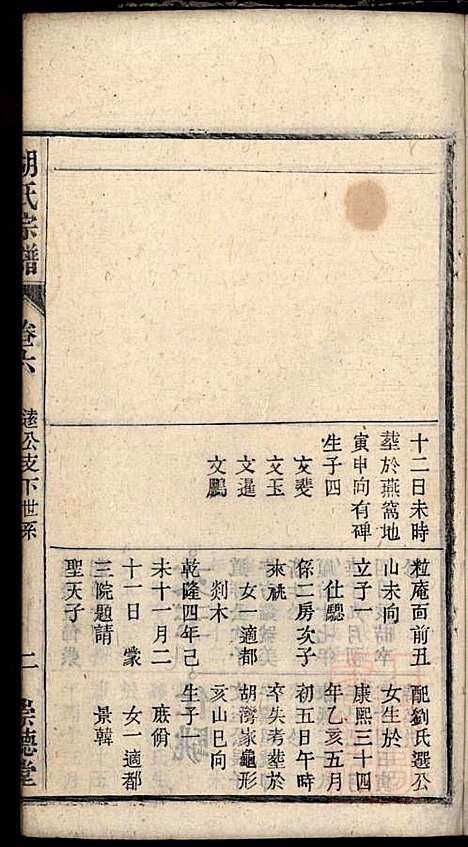 十二日未時
塟於燕窩地
寅申向有碑
生子四
文斐
文玉
文暹
文鵬
粒庵面前丑
山未向
立子一
仕驄
係二房次子
來祧
女一適都
剡木
乾隆四年己
未十一月二
十一日 蒙
三院題請
聖天子
配劉氏選公
女生於
康熙三十四
年乙亥五月
初五日午時
卒失考塟於
胡灣家龜形
亥山巳向
生子十
庶俏
女一適都
景韓
胡氏宗譜
卷六
逵公支下世系
二
崇德堂